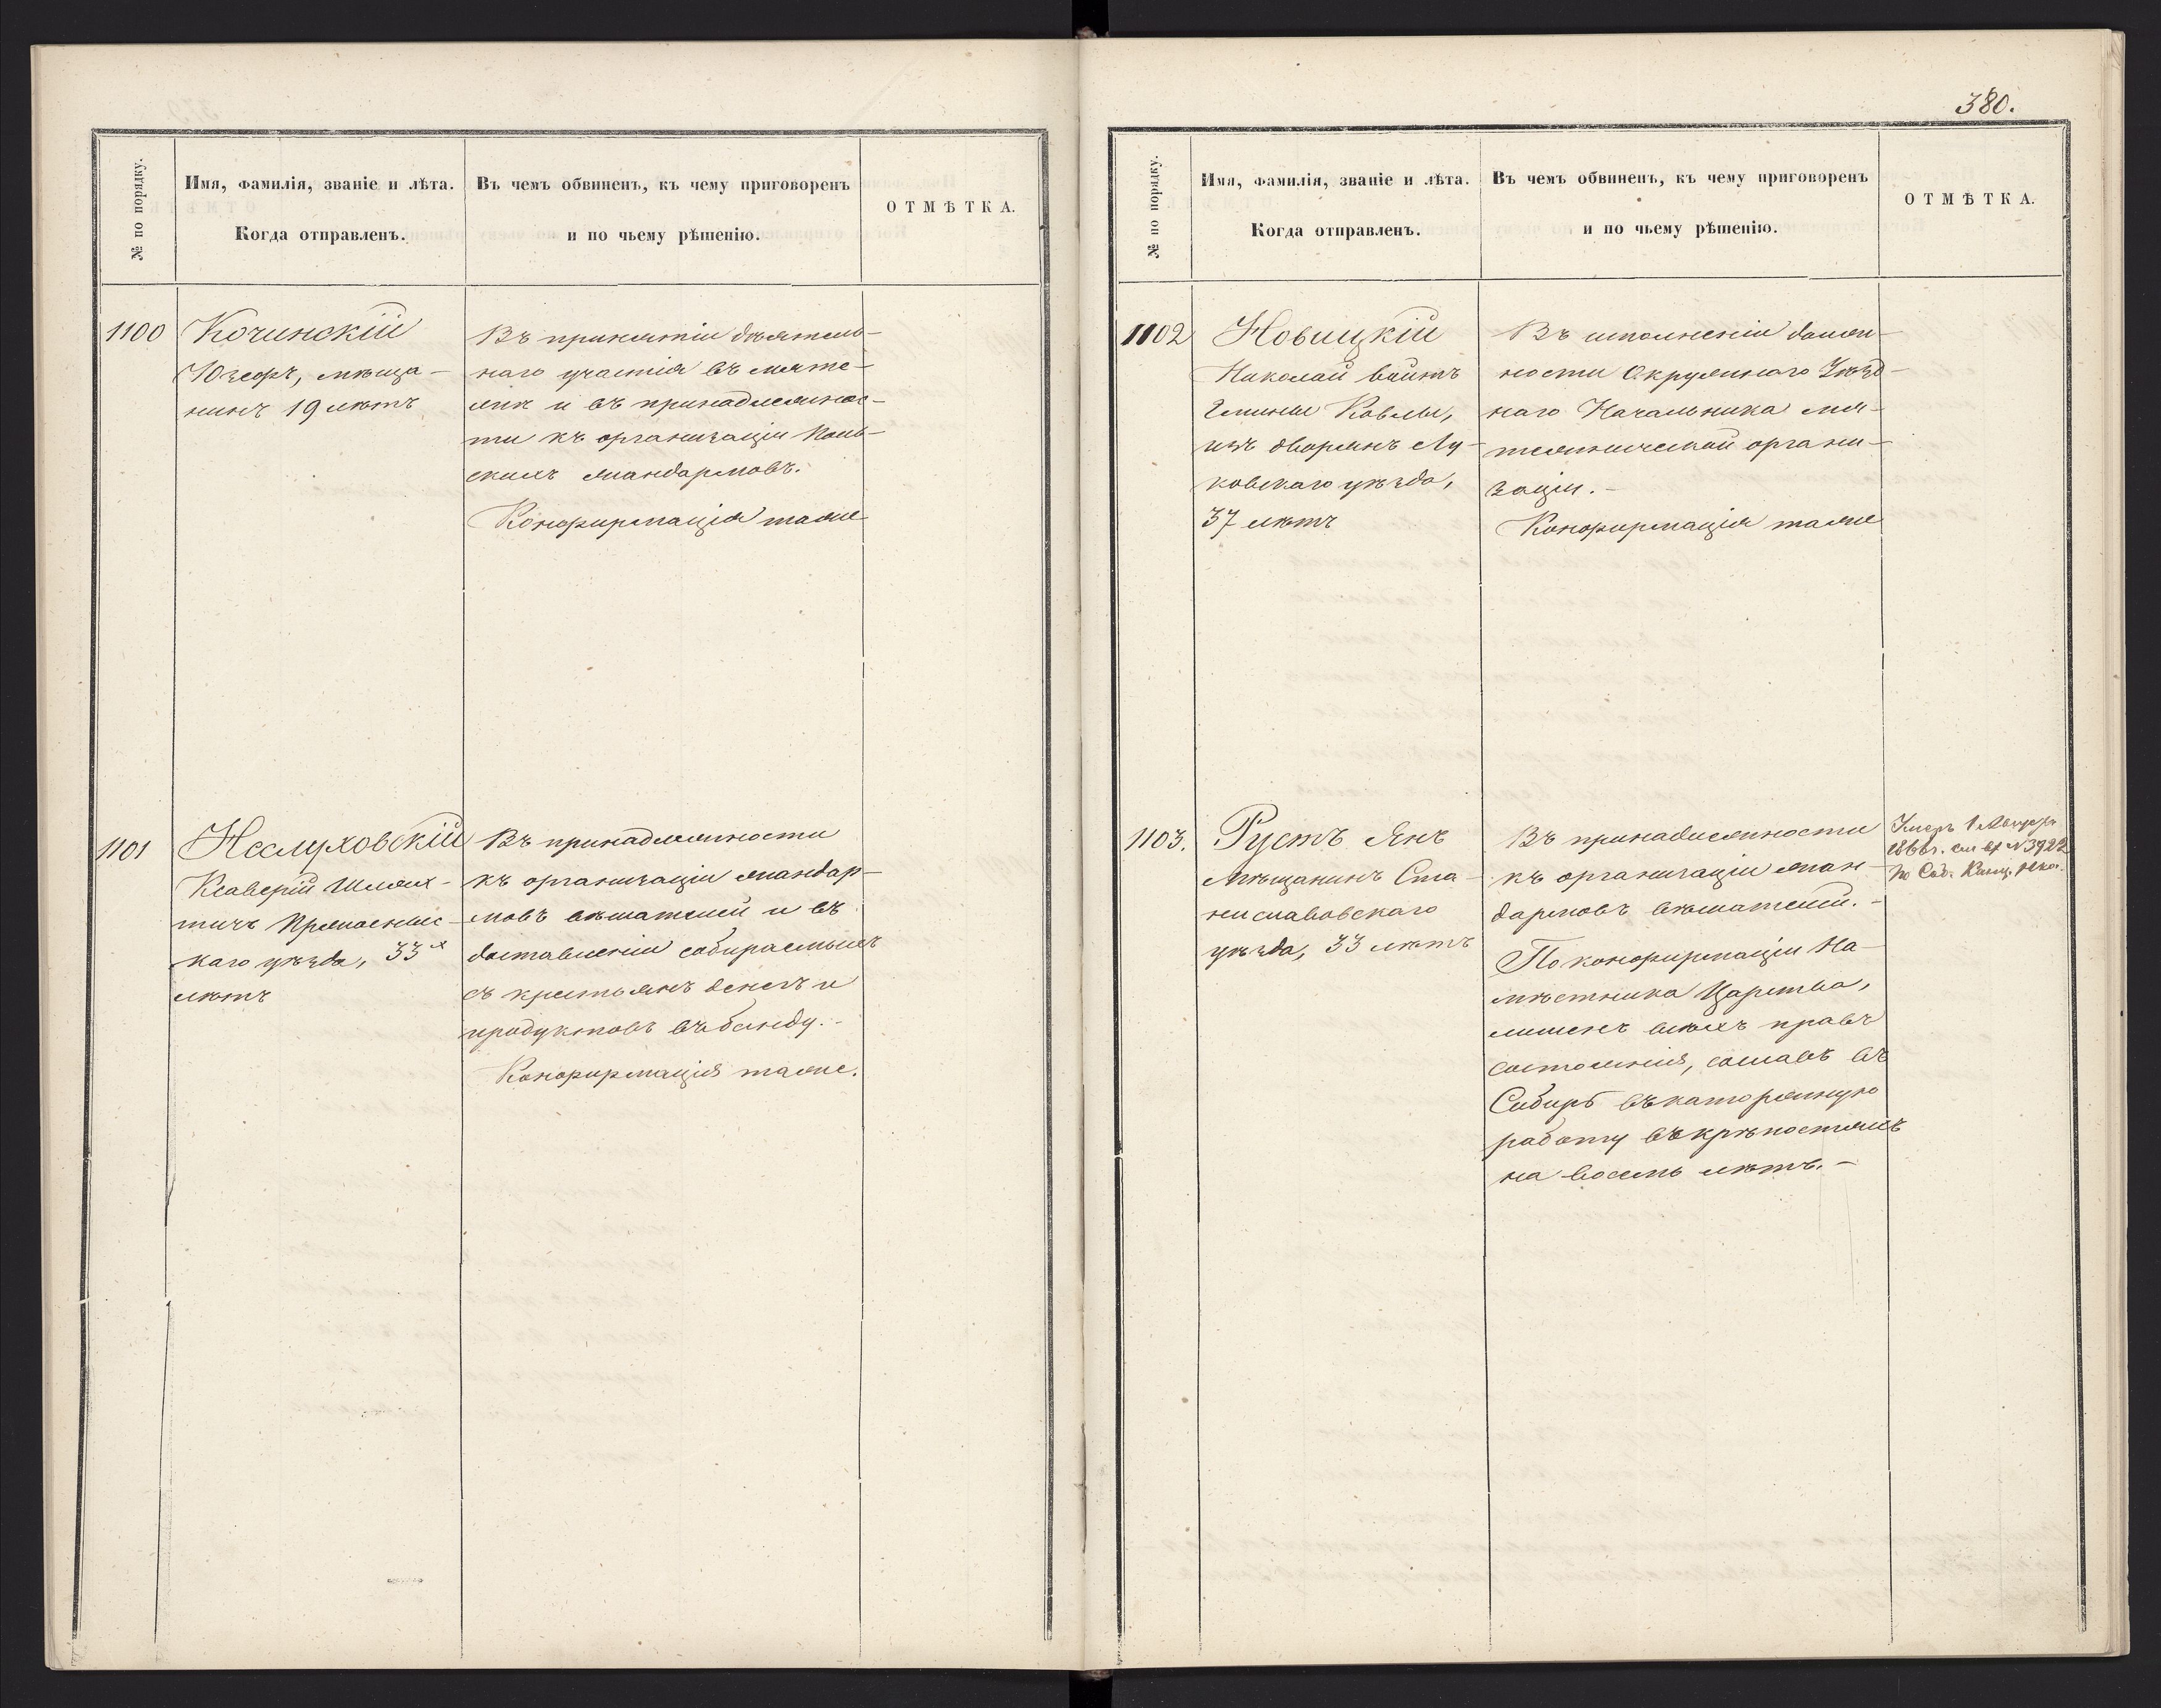 № по порядку.
Имя, фамилія, званіе и лѣта.
Когда отправленъ.
Въ чемъ обвиненъ, къ чему приговоренъ
и по чьему рѣшенію.
ОТМѢТКА.
1100
Кочинскій
Юзефъ, мѣща-
нинъ 19 лѣтъ
Въ принятіи дѣятель-
наго участія въ мяте-
жѣ и въ принадлежнос-
ти къ организаціи Поль-
скихъ жандармовъ.
Конфирмація таже
1101
Неслуховскій
Ксаверій Шлях-
тичъ
каго уѣзда, 33х
лѣтъ
Въ принадлежности
къ организаціи жандар-
мовъ вѣшателей и въ
доставленіи собираемыхъ
съ крестьянъ денегъ и
продуктовъ въ банду.-
Конфирмація таже.
380.
№ по порядку.
Имя, фамилія, званіе и лѣта.
Когда отправленъ.
Въ чемъ обвиненъ, къ чему приговоренъ
и по чьему рѣшенію.
ОТМѢТКА.
1102
Новицкій
Николай войтъ
Гмины
изъ дворянъ Лу-
ковскаго уѣзда,
37 лѣтъ
Въ исполненіи должн-
ности Окружнаго Уѣзд-
наго Начальника мя-
тежнической органи-
заціи.-
Конфирмація таже
1103.
Рустъ Янъ
Мѣщанинъ Ста-
ниславовскаго
уѣзда, 33 лѣтъ
Въ принадлежности
къ организаціи жан-
дармовъ вѣшателей.-
По конфирмаціи На-
мѣстника Царства,
лишенъ всѣхъ правъ
состоянія, сославъ въ
Сибирь въ каторжную
работу въ крѣпостяхъ
на восемь лѣтъ.-
Умеръ 1
186 г. см. вх. № 3922
по